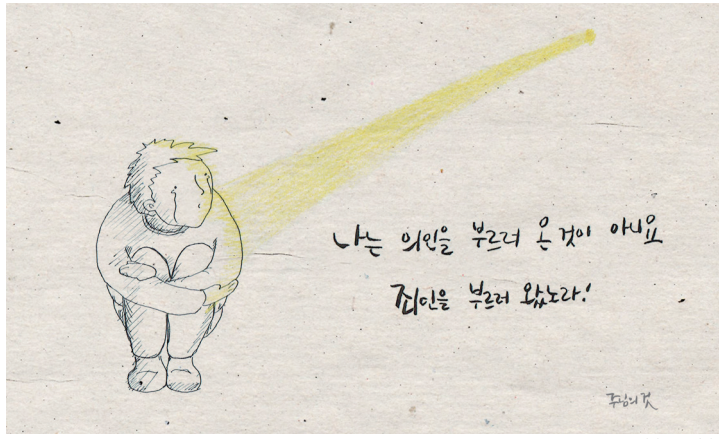 나는 의인을 부르러 온 것이 아니요
죄인을 부르러 왔노라!
주님의 것